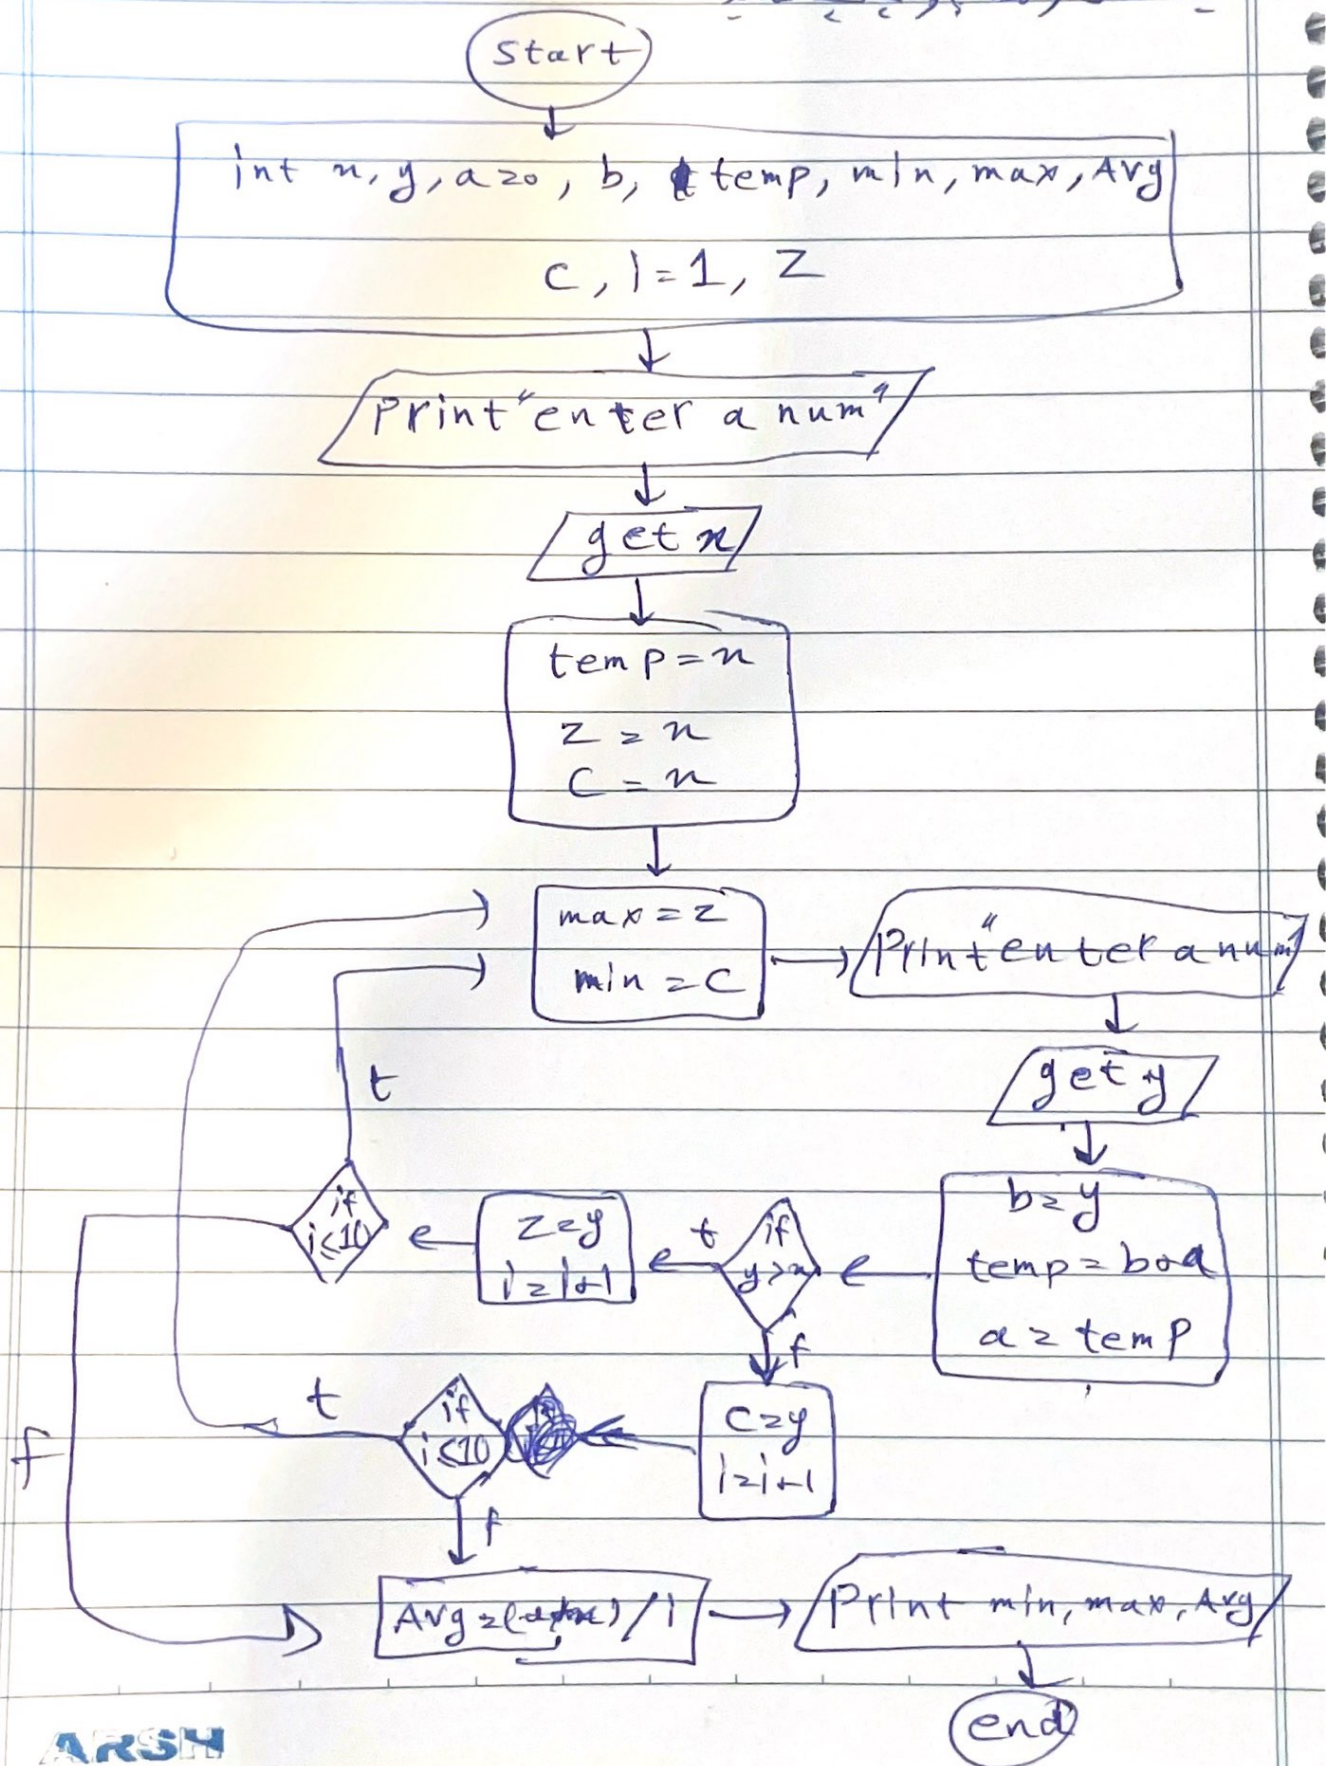 start
int x, y, a=0, b, temp, min, max, Avg
c, i=1, z
Print "enter a num"
get x
temp = x
z = x
c = x
max = z
min = c
Print "enter a num"
get y
t
b=y
temp = b+a
a = temp
if
y>x
t
z=y
i=i+1
if
i≤10
f
c=y
i=i+1
if
i≤10
t
f
f
Avg=(a+x)/i
Print min, max, Avg
end
ARSH